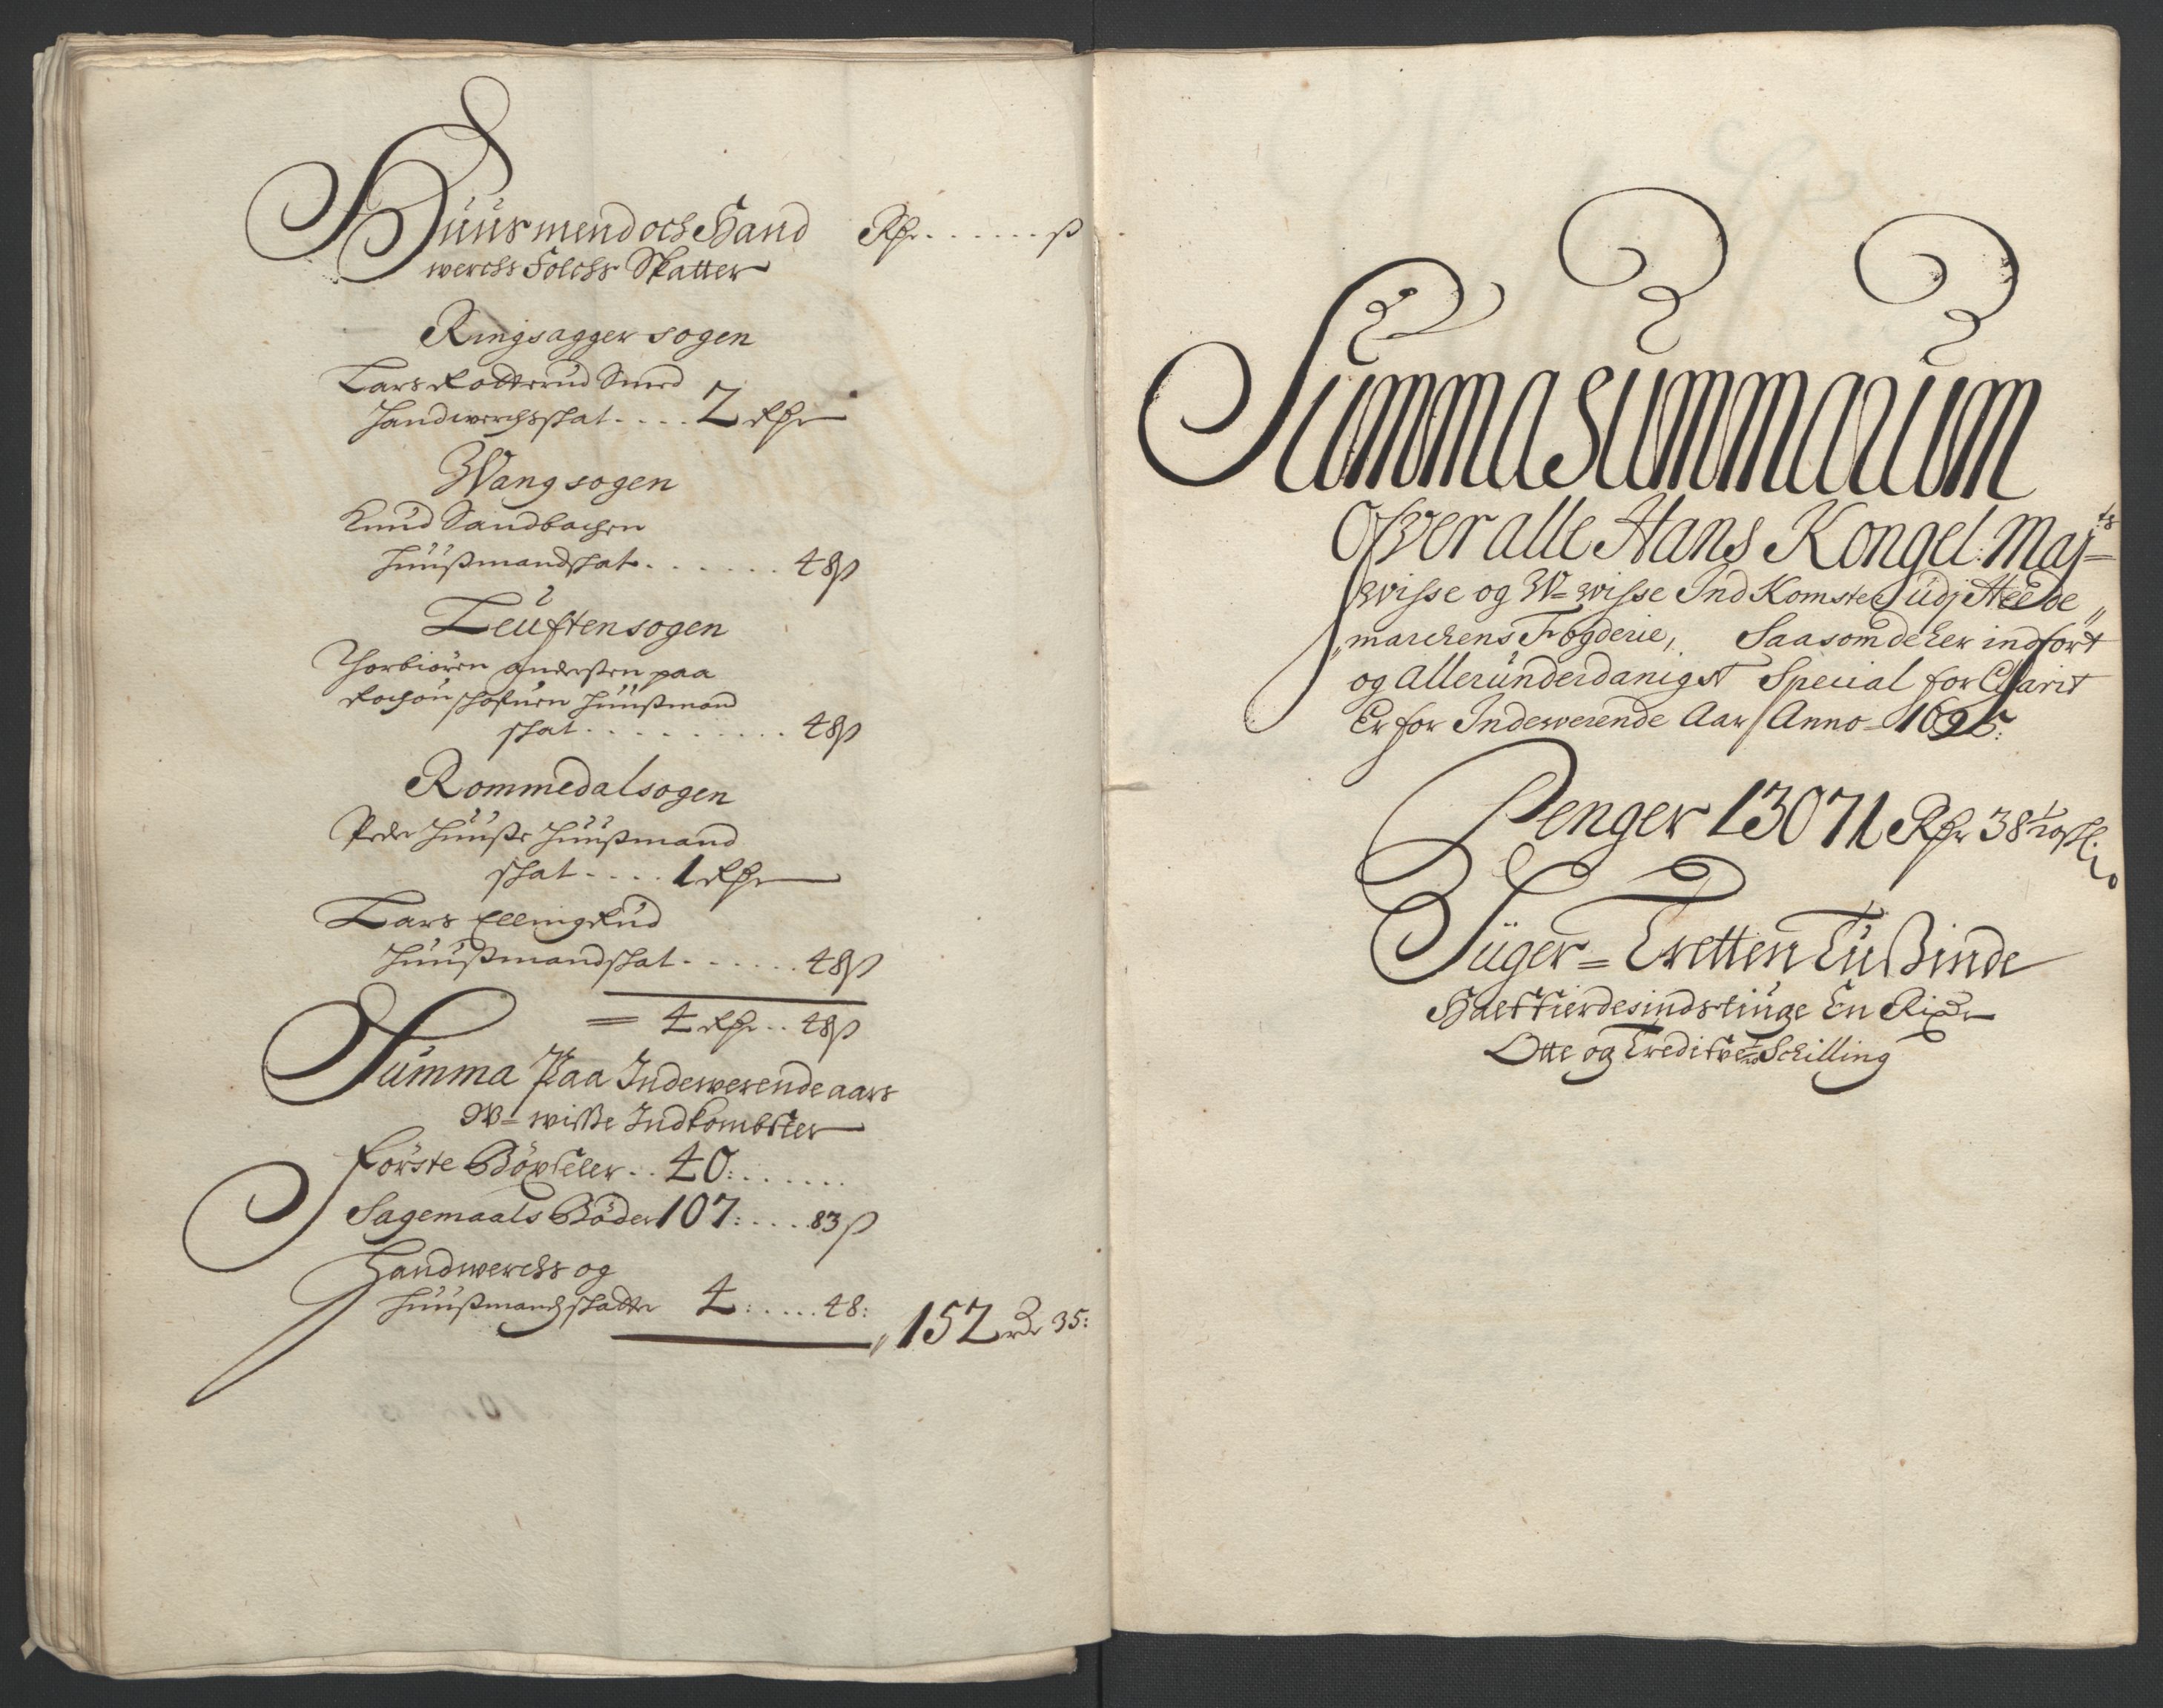 Huusmend och Hand Rdr ...... ß
werchs Folchs Skatter
Ringsagger sogen
Lars Rotterud Smed
Handwerchsskat .... 2 Rdr
Wang sogen
Knud Sandbachen
Huußmandskat ...... 48 ß
Leuften sogen
Thorbiören Anderßen paa
Huußmand
skat .......... 48 ß
Rommedal sogen
Peder Huuße Huußmand
skat .... 1 Rdr
Lars Ellingrud
Huußmandskat ...... 48 ß
= 4 Rdr .. 48 ß
Summa Paa Indewerende aars
W-wiße Indkombster
Förste Böxseler .. 40: ......
Sagemaals Böder 107: .... 83 ß
Handwerchs og
Huußmands skatter 4: .... 48:
152 Rdr 35:
Summa Summarum
Ofver alle Hans Kongel: Maj-ts
wisse og W-wisse Ind Komster udj Heede„
„marckens Fogderie, Saasom de her indfört
og Allerunderdanigst Special for Clarit
Er for Indewerende Aar Anno- 1695:
Penger 13071 Rdr 38 1/20 ß
Siiger = Tretten Tußinde
Halftierdesindstiuge En Rixdr
Otte og Tredive 1/20 Schilling